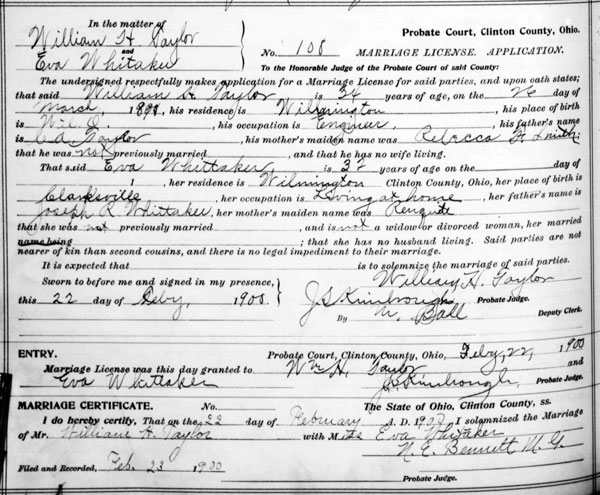 In the matter of
William H Taylor
and
Eva Whitaker
Probate Court, Clinton County, Ohio.
No. 108 MARRIAGE LICENSE. APPLICATION.
To the Honorable Judge of the Probate Court of said County:
The undersigned respectfully makes application for a Marriage License for said parties, and upon oath states;
that said William H. Taylor is 34 years of age, on the 26 day of
March, his residence is Wilmington, his place of birth
is Wil. O., his occupation is Engineer, his father's name
is Taylor, his mother's maiden name was Rebecca Smith
that he was not previously married, and that he has no wife living.
That said Eva Whittaker, is 32 years of age on the day of
1, her residence is Wilmington Clinton County, Ohio, her place of birth is
Clarksville, her occupation is Living at home, her father's name is
Joseph R Whittaker, her mother's maiden name was
that she was not previously married, and is not a widow or divorced woman, her married
name being ; that she has no husband living. Said parties are not
nearer of kin than second cousins, and there is no legal impediment to their marriage.
It is expected that is to solemnize the marriage of said parties.
Sworn to before me and signed in my presence, William H. Taylor
this 22 day of Feby, 1900. J S Kimbrough Probate Judge.
By Ball Deputy Clerk.
ENTRY. Probate Court, Clinton County, Ohio, Feby 22, 1900
Marriage License was this day granted to Wm H. Taylor
Eva Whittaker J S Kimbrough, Probate Judge.
MARRIAGE CERTIFICATE. No. The State of Ohio, Clinton County, ss.
I do hereby certify, That on the 22 day of February A. D. 1900 I solemnized the Marriage
of Mr. William H. Taylor with Miss Eva Whitaker
N. E. Bennett M. G.
Filed and Recorded, Feb. 23 1900
Probate Judge.